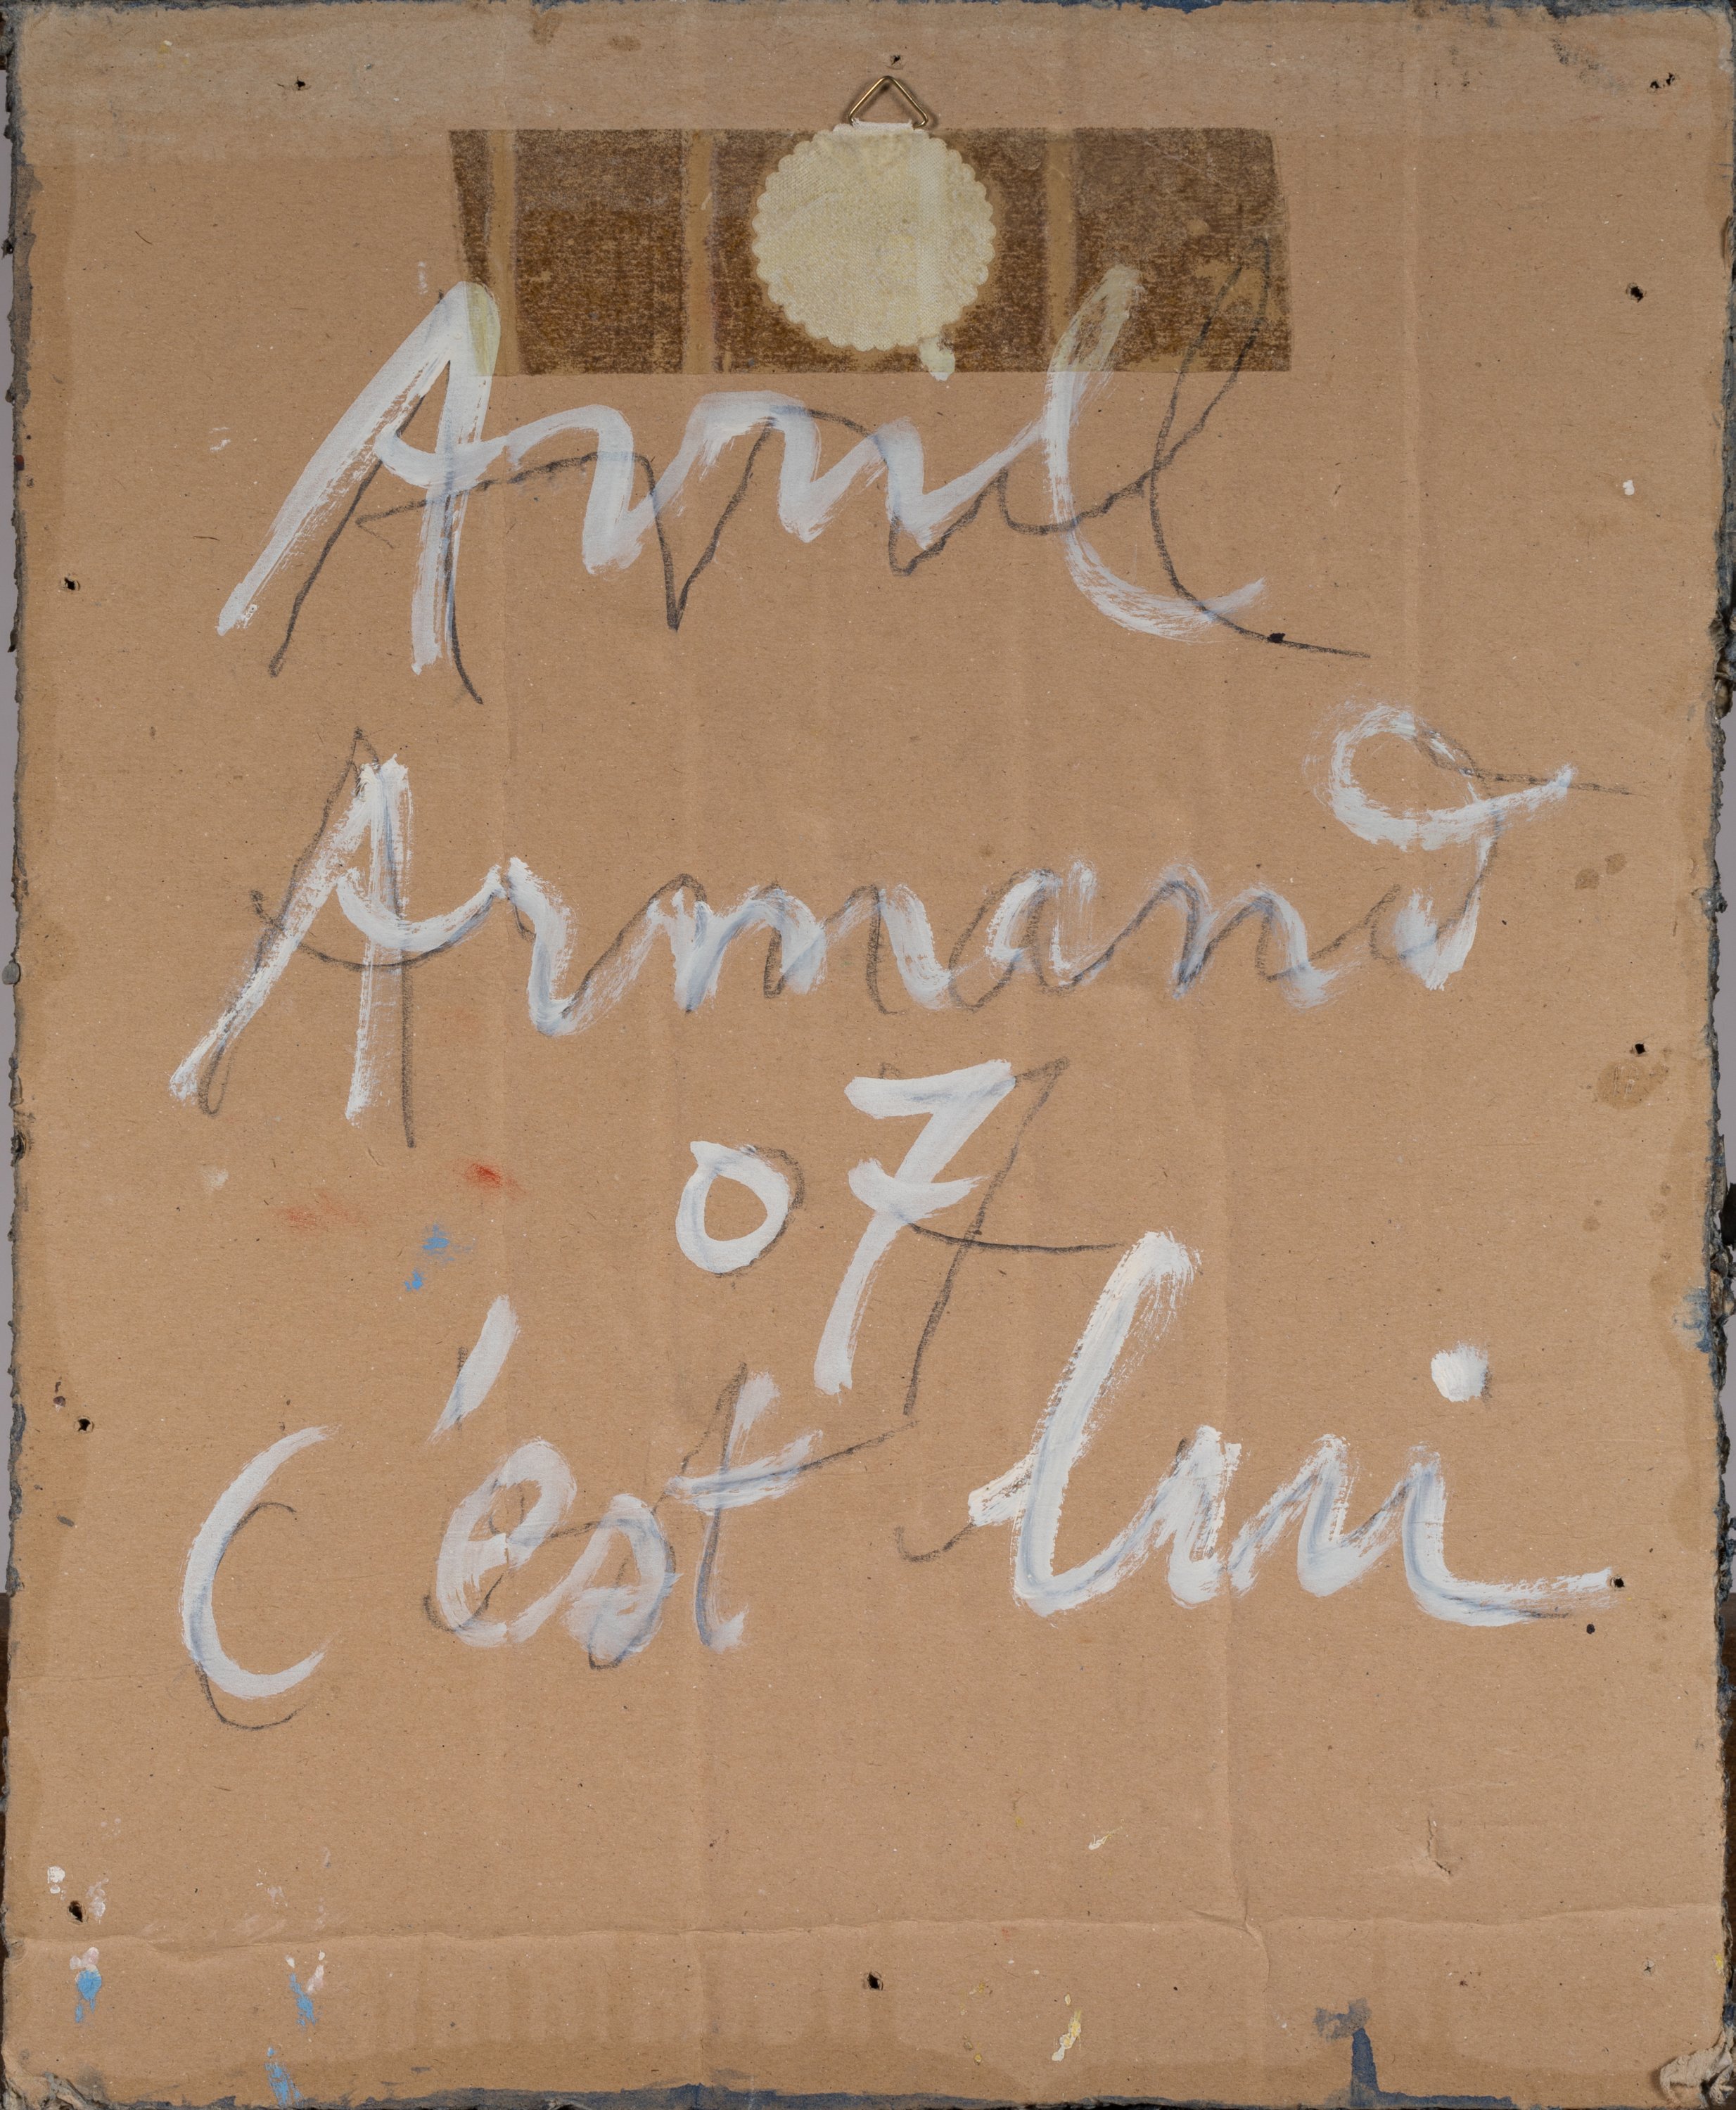 Avril
Armand
07
c'est lui